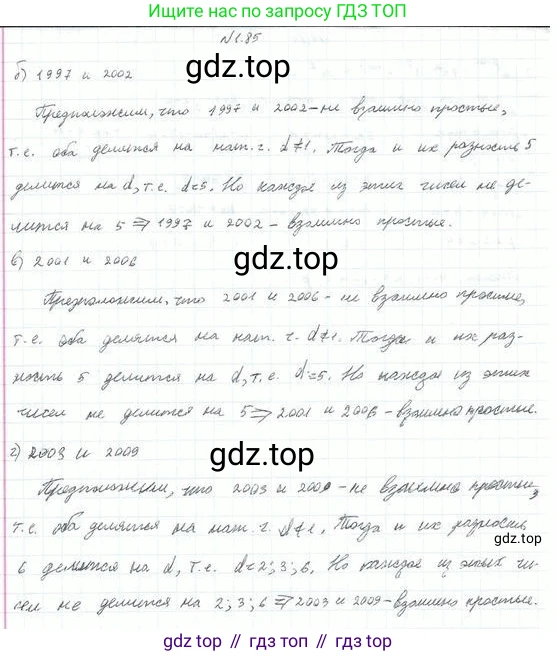 Ищите нас по запросу ГДЗ.TOP
N1.85
gdz.top
б) 1997 и 2002
Предположим, что 1997 и 2002-не взаимно простые,
т.е. оба делятся на нат. ч. d≠1. Тогда и их разность 5
делится на d, т.е. d=5. Но каждое из этих чисел не де-
лится на 5 ⇒ 1997 и 2002 - взаимно простые.
в) 2001 и 2006
gdz.top
Предположим, что 2001 и 2006 - не взаимно простые,
т.е. оба делятся на нат. ч. d≠1. Тогда и их раз-
ность 5 делится на d, т.е. d=5. Но каждое из этих
чисел не делится на 5 ⇒ 2001 и 2006 - взаимно простые.
г) 2003 и 2009
gdz.top
Предположим, что 2003 и 2009 - не взаимно простые,
т.е. оба делятся на нат. ч. d≠1. Тогда и их разность
6 делится на d, т.е. d=2; 3; 6. Но каждое из этих чи-
сел не делится на 2; 3; 6 ⇒ 2003 и 2009 - взаимно простые.
gdz.top // гдз.top // гдз.топ